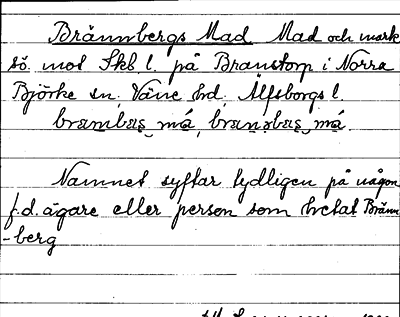 Brännbergs Mad Mad och mark
sö. mot Skb. l. på Branstorp i Norra
Björke sn, Väne hd, Älfsborgs l.
brambas må, branabas må.
Namnet syftar tydligen på någon
f.d. ägare eller person som hetat Bränn
-berg